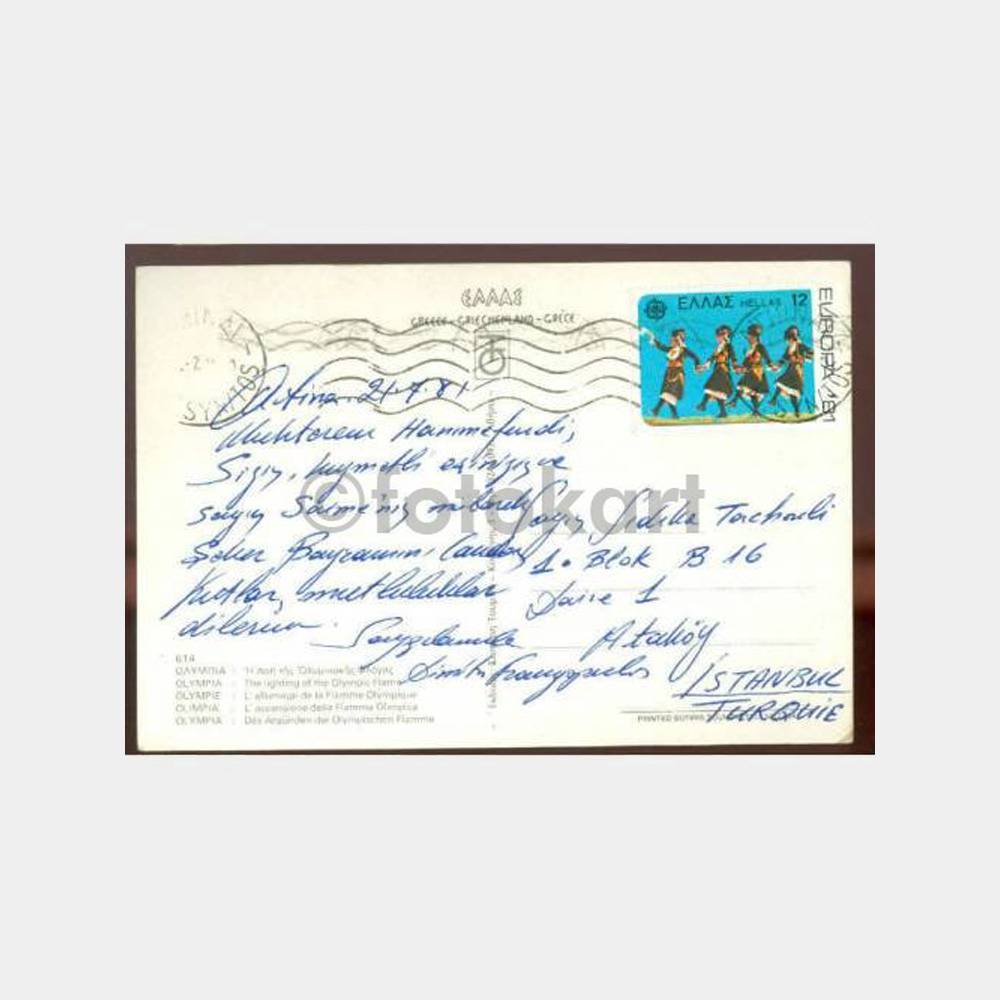 ΕΛΛΑΣ
GREECE - GRIECHENLAND - GRÈCE
ΕΛΛΑΣ HELLAS 12
EUROPA 1981
Atina 21.7.81
Muhterem Hanımefendi,
Sizin, kıymetli eşinizin ve
sayın mübarek
Şeker Bayramını candan
Kutlar, mutluluklar
dilerim.
Saygılarımla
Dimitri
Sayın
1. Blok B 16
Daire 1
Ataköy
İSTANBUL
TURQUIE
614
ΟΛΥΜΠΙΑ : Ἡ ἁφή τῆς Ὀλυμπιακῆς Φλόγας
OLYMPIA : The lighting of the Olympic Flame
OLYMPIE : L' allumage de la Flamme Olympique
OLIMPIA : L' accensione della Fiamma Olimpica
OLYMPIA : Das Anzünden der Olympischen Flamme
PRINTED
©fotokart